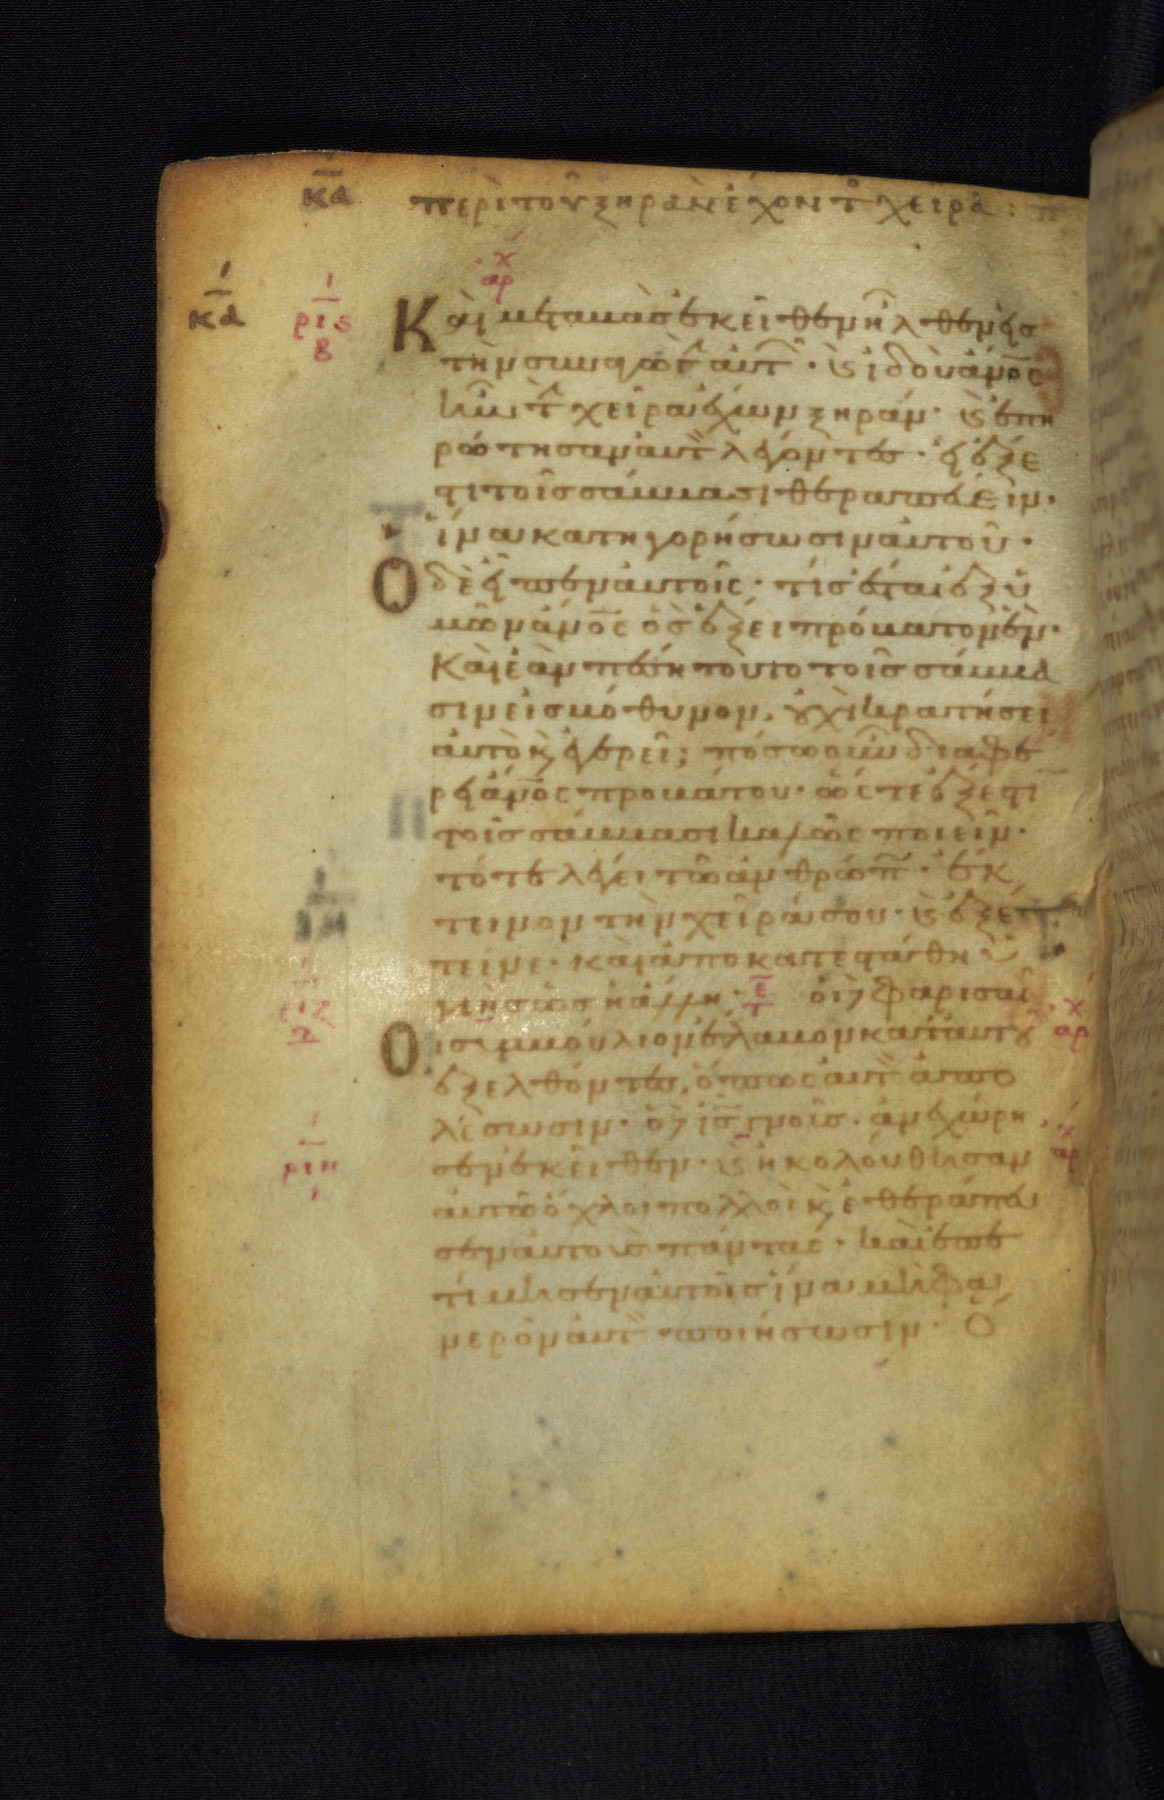 κα περὶ τοῦ ξηρὰν ἔχοντ χεῖρα:
χ
αρ
κα ριϛ β Καὶ μεταβὰς ἐκεῖθεν ἦλθεν εἰς
τὴν συναγωγ αὐτ · καὶ ἰδοὺ ἄνος
ἦν τ χεῖρα ἔχων ξηράν · καὶ ἐπη
ρώτησαν αὐτ λέγοντες · εἰ ἔξε
στι τοῖς σάββασι θεραπεύειν ·
ἵνα κατηγορήσωσιν αὐτοῦ ·
Ὁ δὲ εἶπεν αὐτοῖς · τίς ἔσται ἐξ ὑ
μῶν ἄνος ὃς ἕξει πρόβατον ἕν ·
Καὶ ἐὰν πέσῃ τοῦτο τοῖς σάββα
σιν εἰς βόθυνον · οὐχὶ κρατήσει
αὐτὸ καὶ ἐγερεῖ; πόσω οὖν διαφέ
ρει ἄνος προβάτου · ὥστε ἔξεστι
τοῖς σάββασι καλῶς ποιεῖν ·
τότε λέγει τῶ ἀνθρώπ · ἔκ
τεινον τὴν χεῖρά σου · καὶ ἐξέ
τεινε · καὶ ἀποκατεστάθη ὑ
ριζ γιὴς ὡς ἡ ἄλλη · οἱ δὲ φαρισαῖ χ
Οι συμβούλιον ἔλαβον κατ αὐτοῦ αρ
ἐξελθόντες · ὅπως αὐτ ἀπο
λέσωσιν · ὁ δὲ ις γνοὺς · ἀνεχώρη χ
ριη σεν ἐκεῖθεν · καὶ ἠκολούθησαν αρ
αὐτῶ ὄχλοι πολλοὶ καὶ ἐθεράπευ
σεν αὐτοὺς πάντας · καὶ ἐπε
τίμησεν αὐτοῖς ἵνα μὴ φα
νερὸν αὐτ ποιήσωσιν ·